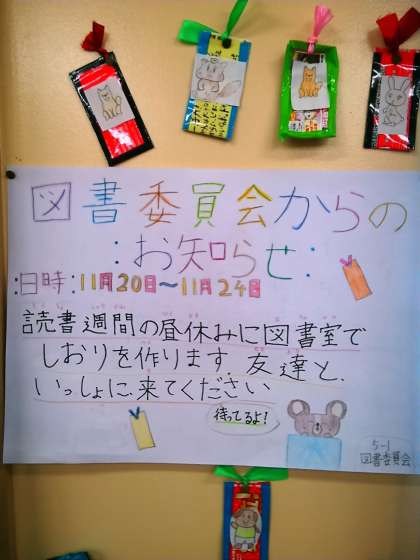 図書委員会からの
:お知らせ:
:日時:11月20日〜11月24日
読書週間の昼休みに図書室で
しおりを作ります。友達と、
いっしょに来てください
待ってるよ!
5-1
図書委員会